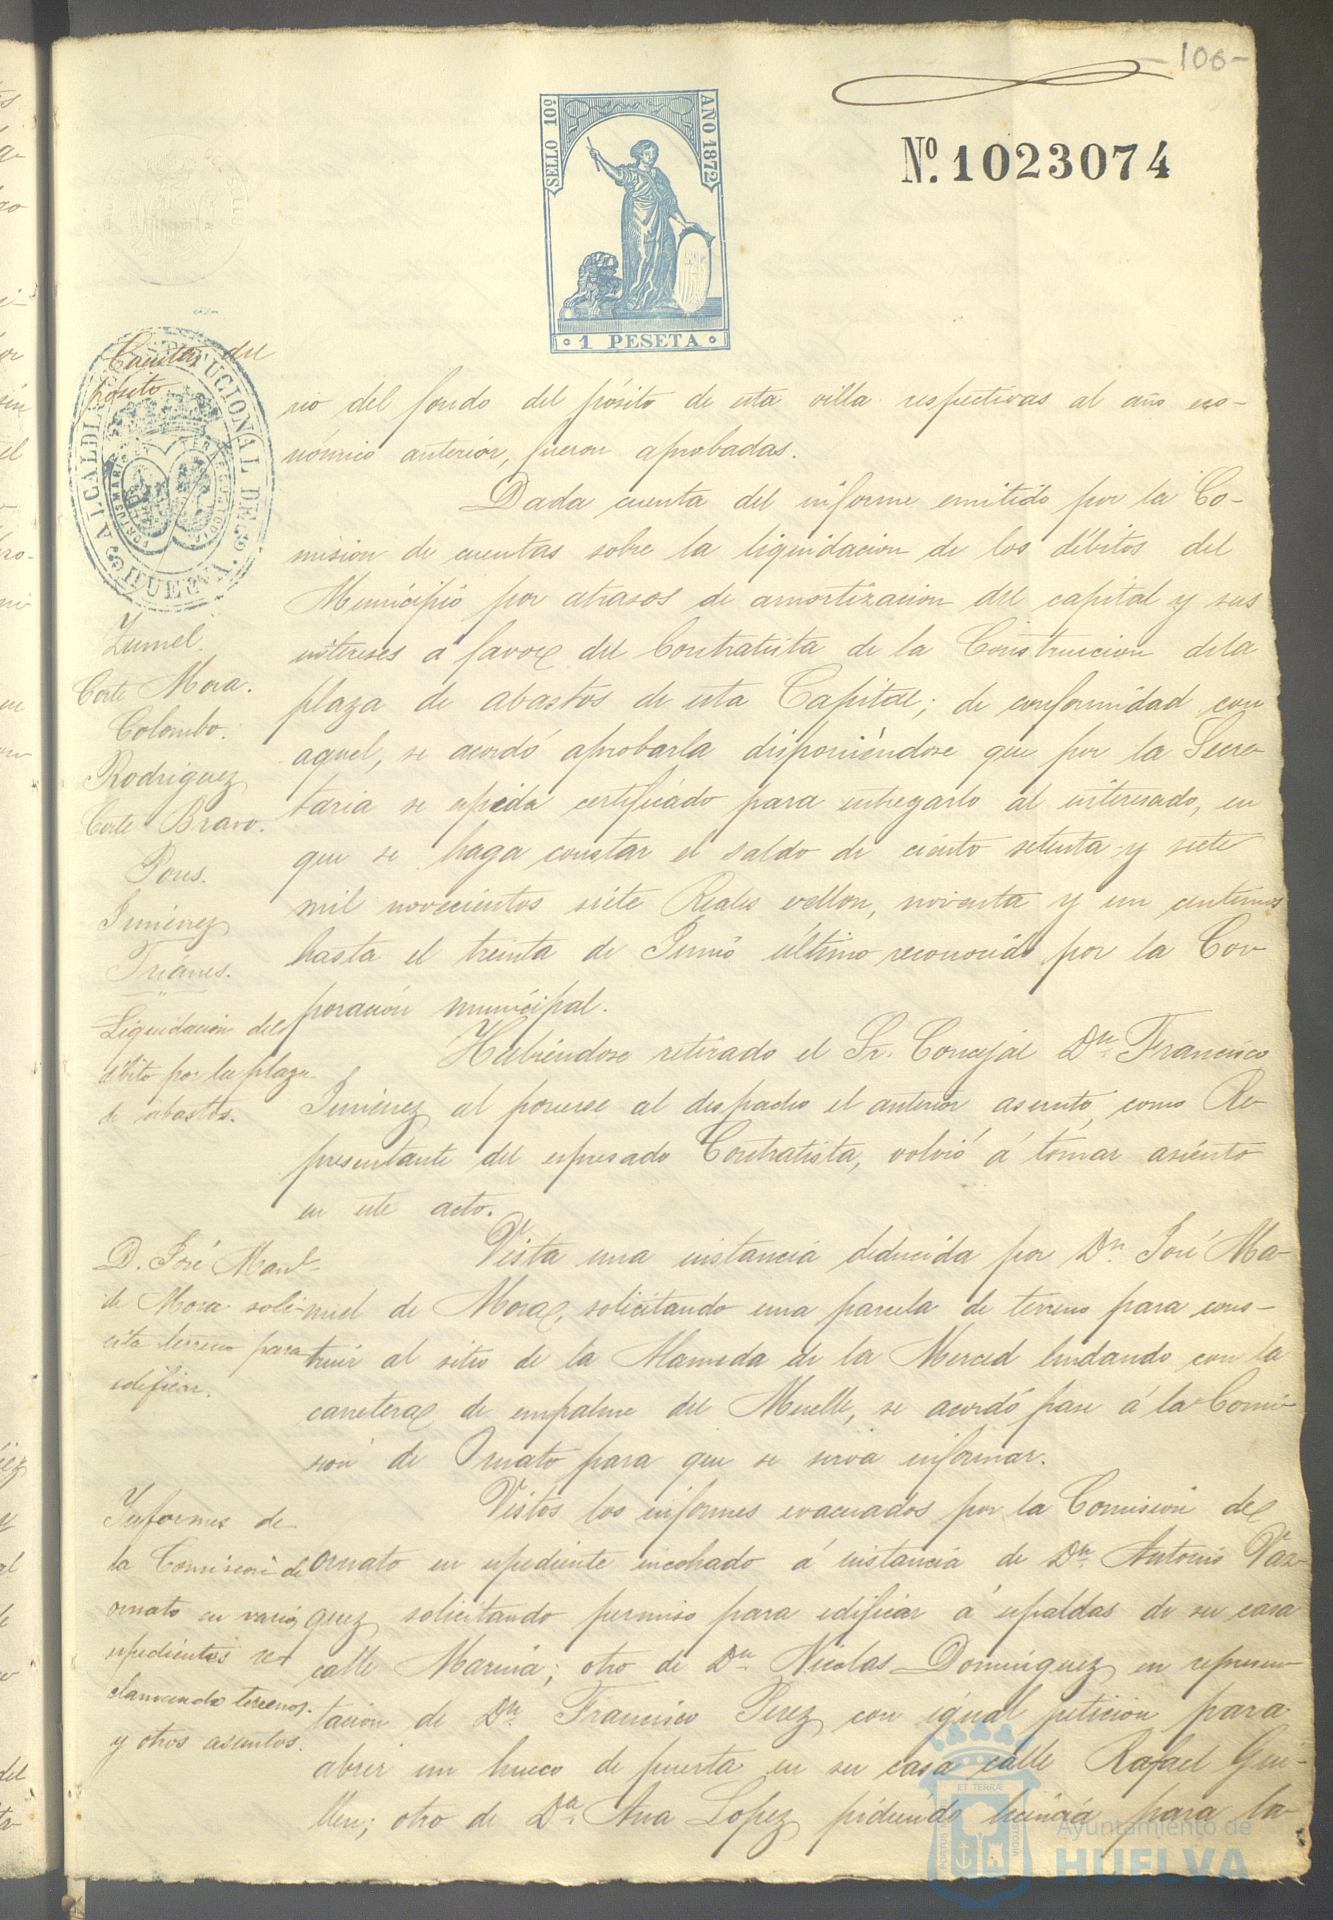 -106-
SELLO 10º
AÑO 1872
Nº. 1023074
1 PESETA
Cuentas del
pósito
ALCALDIA CONSTITUCIONAL DE HUELVA
rio del fondo del pósito de esta villa respectivas al año eco-
nómico anterior, fueron aprobadas.
Dada cuenta del informe emitido por la Co-
mision de cuentas sobre la liquidacion de los débitos del
Municipio por atrasos de amortizacion del capital y sus
intereses á favor del Contratista de la Construccion dela
plaza de abastos de esta Capital; de conformidad con
aquel, se acordó aprobarla disponiéndose que por la Secre-
taria se espida certificado para entregarlo al interesado, en
que se haga constar el saldo de ciento setenta y siete
mil novecientos siete Reales vellon, noventa y un centimos
hasta el treinta de Junio último reconocido por la Cor-
poración municipal.
Zumel.
Corte Mora.
Colombo.
Rodriguez
Corte Bravo.
Pons.
Jimenez
Trianes.
Liquidación del
débito por la plaza
de abastos.
Habiéndose retirado el Sr. Concejal Dn. Francisco
Jimenez al ponerse al despacho el anterior asunto, como Re-
presentante del espresado Contratista, volvió á tomar asiento
en este acto.
D. José Manl.
de Mora soli-
cita terreno para
edificar.
Vista una instancia deducida por Dn. José Ma-
nuel de Mora, solicitando una parcela de terreno para cons-
truir al sitio de la Alameda de la Merced lindando con la
carretera de empalme del Muelle, se acordó pase á la Comi-
sión de Ornato para que se sirva informar.
Informes de
la Comision de
ornato en varios
espedientes re-
clamando terrenos
y otros asuntos.
Vistos los informes evacuados por la Comision de
ornato en espediente incohado á instancia de Dn. Antonio Vaz-
quez solicitando permiso para edificar á espaldas de su casa
calle Marina; otro de Dn. Nicolas Dominguez en represen-
tacion de Dn. Francisco Perez con igual peticion para
abrir un hueco de puerta en su casa calle Rafael Gui-
llen; otro de Da. Ana Lopez pidiendo licencia para la-
Ayuntamiento de
HUELVA